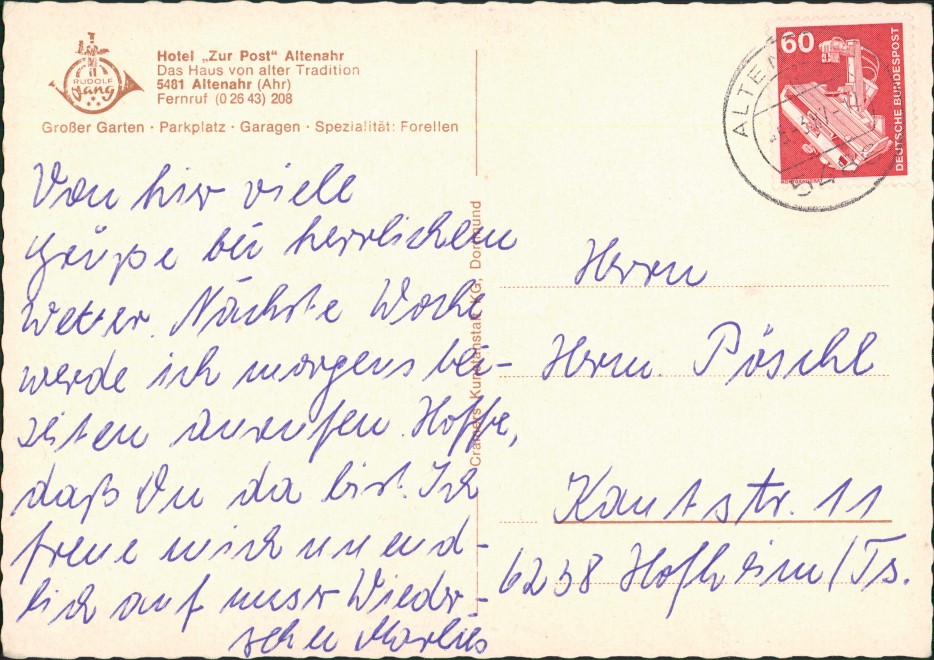 RUDOLF
Nang
Hotel „Zur Post" Altenahr
Das Haus von alter Tradition
5481 Altenahr (Ahr)
Fernruf (0 26 43) 208
Großer Garten · Parkplatz · Garagen · Spezialität: Forellen
Von hier viele
Grüße bei herrlichem
Wetter. Nächste Woche
werde ich morgens bei-
zeiten anrufen. Hoffe,
daß Du da bist. Ich
freue mich unend-
lich auf unser Wieder-
sehen Marlies
Cramers Kunstanstalt KG, Dortmund
60
DEUTSCHE BUNDESPOST
Herrn
Herm. Pöschl
Kantstr. 11
6238 Hofheim/Ts.